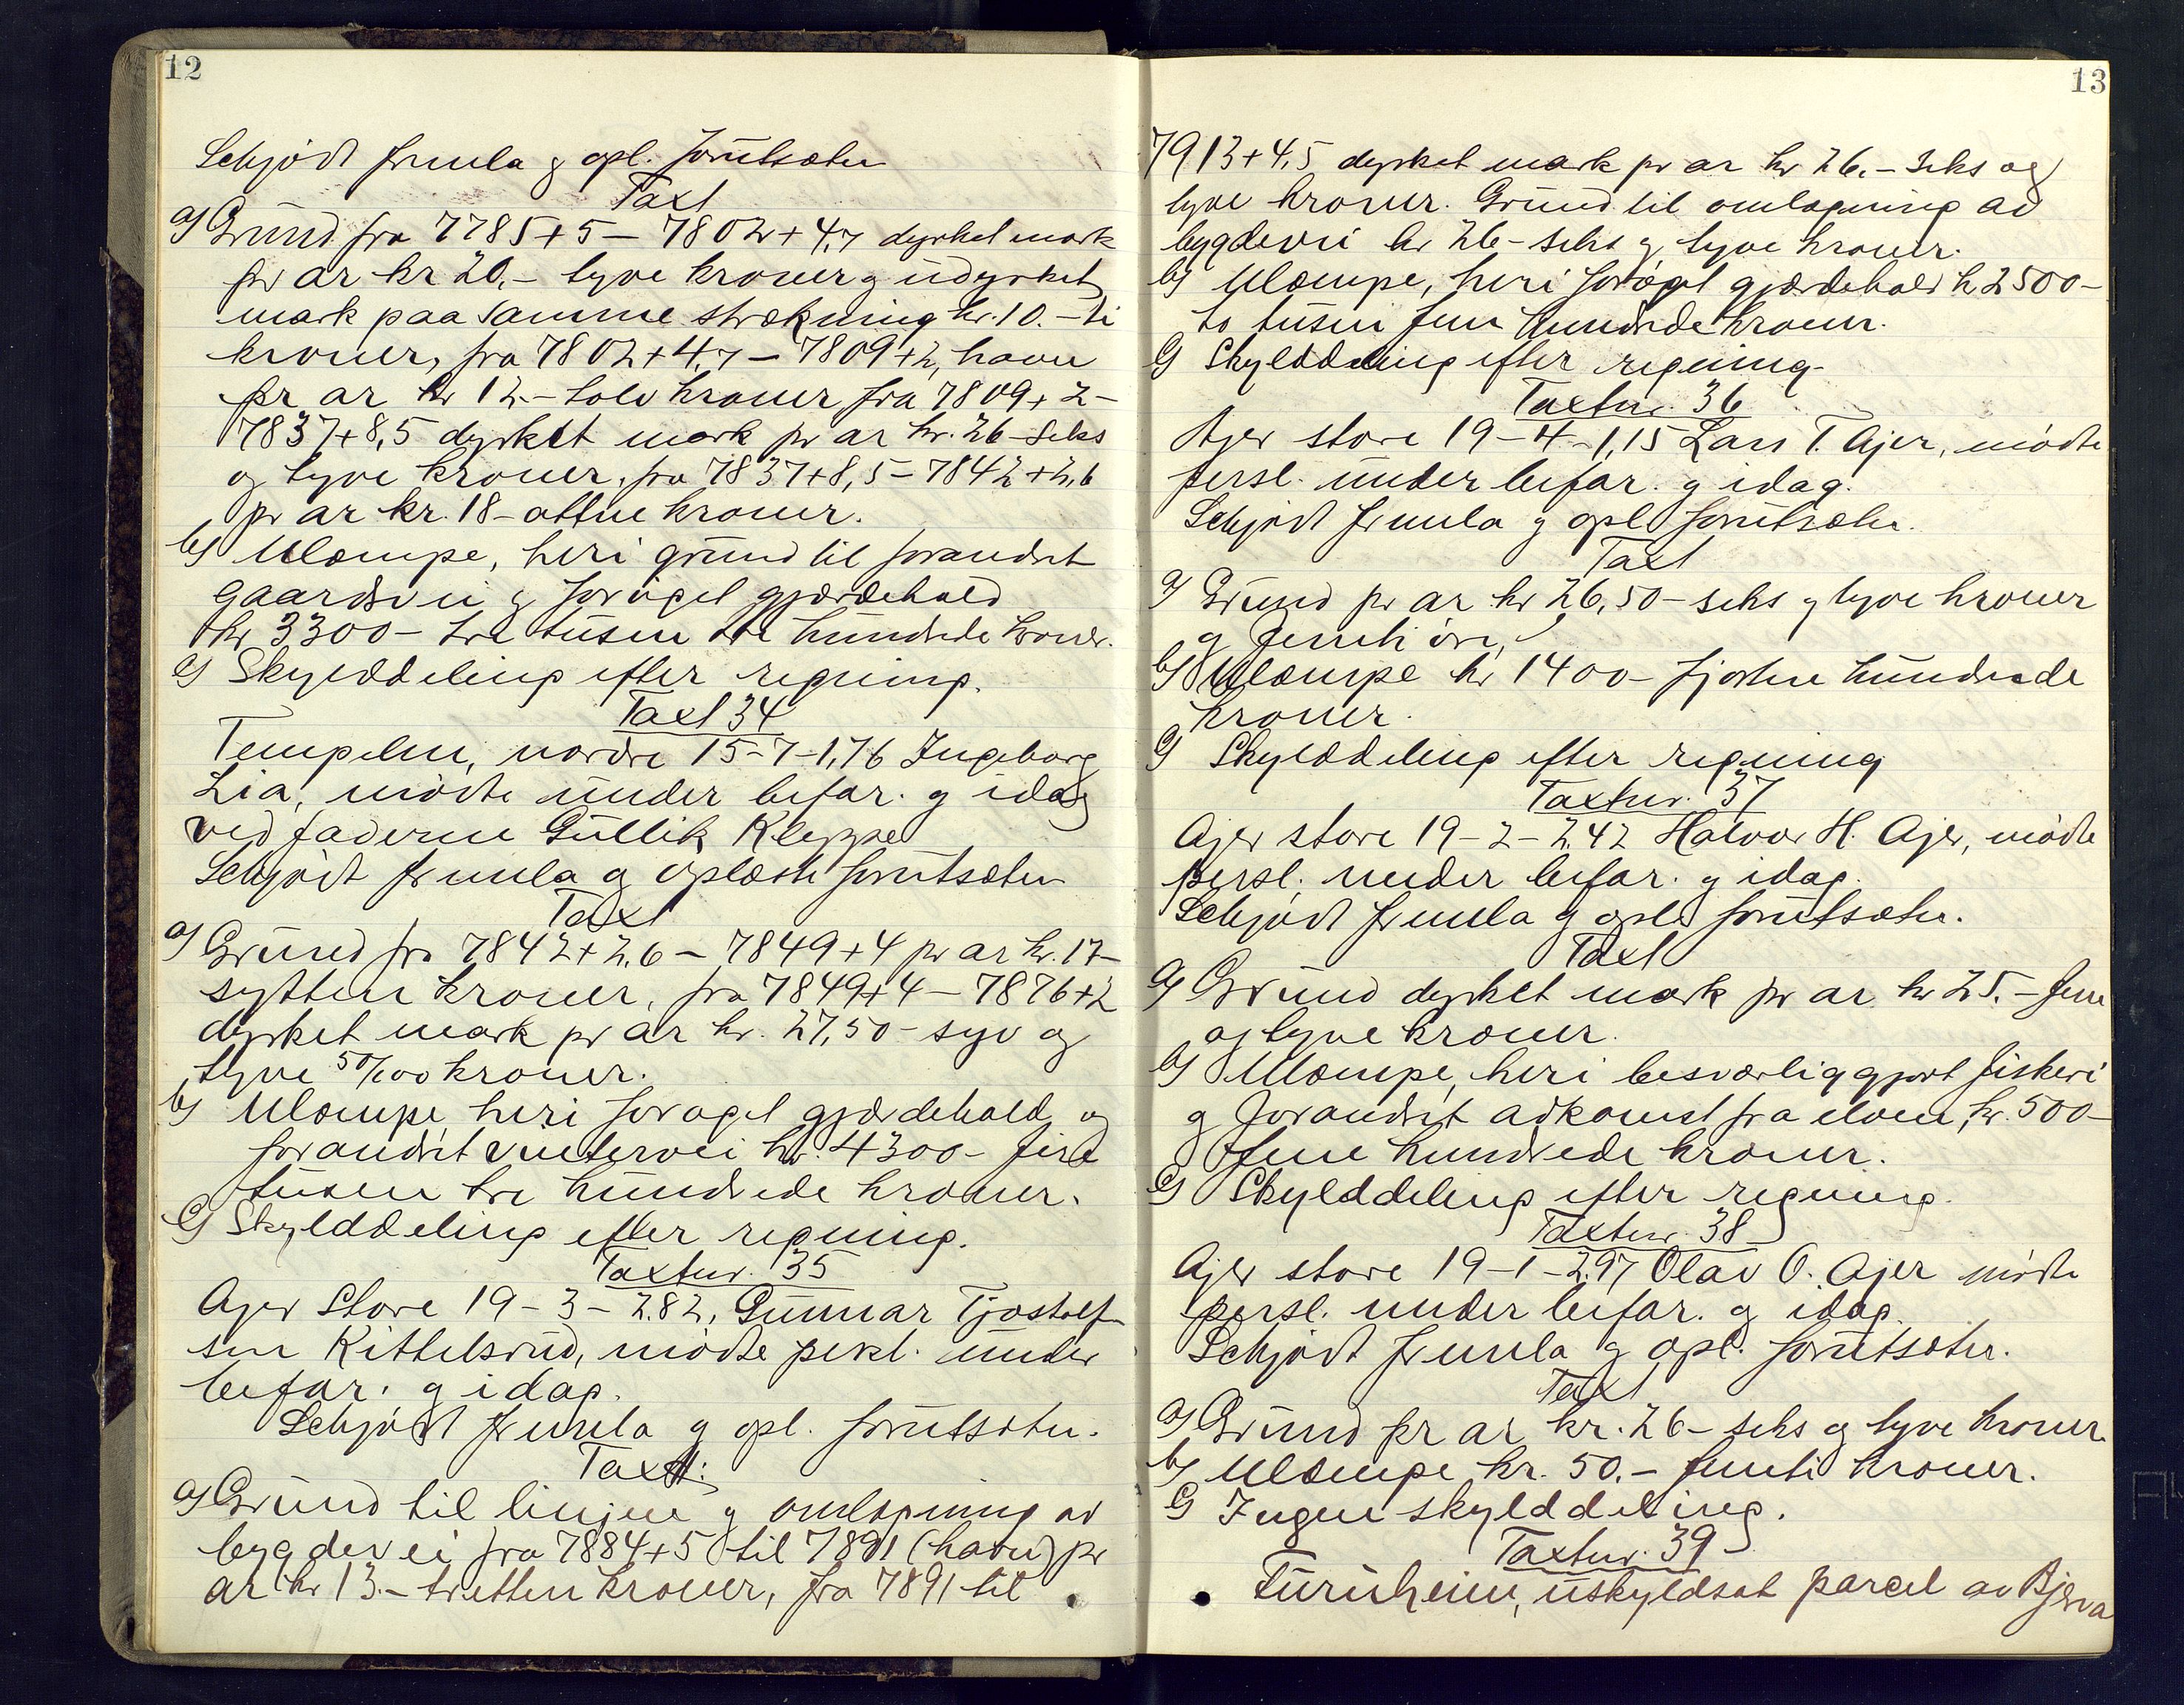 12
Schjødt fremla g opl. forutsætn
Taxt
a) Grund fra 7785+5 – 7802+4,7 dyrket mark
pr ar kr 20,- tyve kroner g udyrket
mark paa samme strækning kr. 10.- ti
kroner, fra 7802+4,7 – 7809+2, havn
pr ar kr 12.- tolv kroner fra 7809+2 –
7837+8,5 dyrket mark pr ar kr. 26 – seks
og tyve kroner, fra 7837+8,5 – 7842+2,6
pr ar kr. 18 – atten kroner.
b) Ulæmpe, heri grund til forandret
gaardsvei g forøget gjærdehold
kr 3300 – tre tusen tre hundrede kroner.
c) Skylddeling efter regning.
Taxt 34
Tempelen, nordre 15-7-1,76 Ingeborg
Lia, mødte under befar. g idag
ved faderen Gullik Kleppe
Schjødt fremla g oplæste forutsætn
Taxt
a) Grund fra 7842+2,6 – 7849+4 pr ar kr. 17 –
sytten kroner, fra 7849+4 – 7876+2
dyrket mark pr ar kr. 27,50 – syv og
tyve 50/100 kroner.
b) Ulæmpe, heri forøget gjærdehold og
forandret vintervei kr. 4300 – fire
tusen tre hundrede kroner.
c) Skylddeling efter regning.
Taxtnr. 35
Ajer Store 19 – 3 – 2.82, Gunnar Tjostolf-
sen Kittelsrud, mødte persl. under
befar. g idag.
Schjødt fremla g opl. forutsætn.
Taxt:
a) Grund til linjen g omlægning av
bygdevei fra 7884+5 til 7891 (havn) pr
ar kr 13.- tretten kroner, fra 7891 til
13
7913+4,5 dyrket mark pr ar kr 26.- seks og
tyve kroner. Grund til omlægning av
bygdevei kr 26 – seks g tyve kroner.
b) Ulæmpe, heri forøget gjærdehold kr 2500 –
to tusen fem hundrede kroner.
c) Skylddeling efter regning.
Taxtnr. 36
Ajer store 19 – 4 – 1,15 Lars T. Ajer, mødte
persl. under befar. g idag.
Schjødt fremla g opl. forutsætn.
Taxt
a) Grund pr ar kr 26,50 – seks g tyve kroner
g femti øre,
b) Ulæmpe kr 1400 – fjorten hundrede
kroner.
c) Skylddeling efter regning
Taxtnr. 37
Ajer store 19 – 2 – 2,42 Halvor H. Ajer, mødte
persl. under befar. g idag.
Schjødt fremla g opl. forutsætn.
Taxt
a) Grund dyrket mark pr ar kr 25.- fem
og tyve kroner.
b) Ulæmpe, heri besværliggjort fiskeri
g forandret adkomst fra elven, kr. 500 –
fem hundrede kroner.
c) Skylddeling efter regning.
Taxtnr. 38
Ajer store 19 – 1 – 2,97 Olav O. Ajer mødte
persl. under befar. g idag.
Schjødt fremla g opl. forutsætn.
Taxt
a) Grund pr ar kr. 26 – seks og tyve kroner.
b) Ulæmpe kr. 50.- femti kroner.
c) Ingen skylddeling.
Taxtnr. 39
Furuheim, uskyldsat parcel av Bjerva